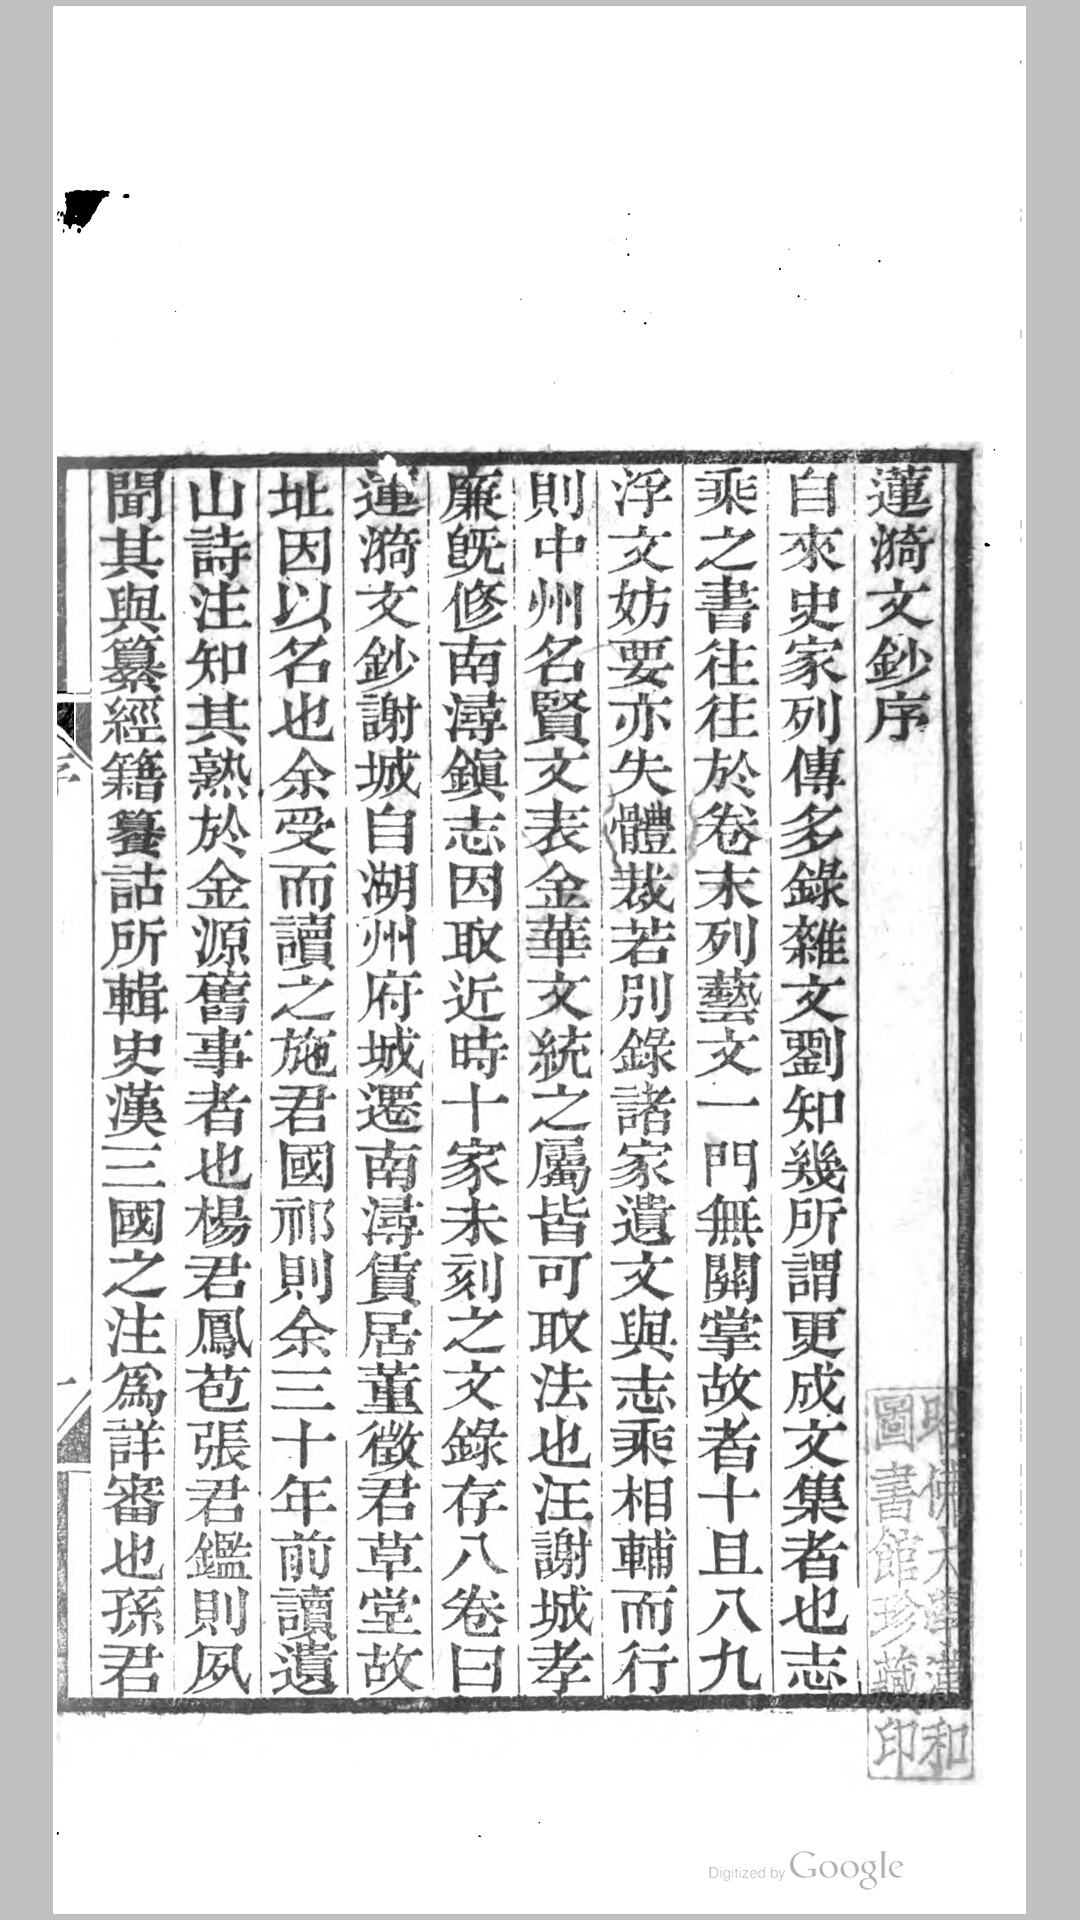 蓮漪文鈔序
自來史家列傳多錄雜文劉知幾所謂更成文集者也志
乘之書往往於卷末列藝文一門無關掌故者十且八九
浮文妨要亦失體裁若別錄諸家遺文與志乘相輔而行
則中州名賢文表金華文統之屬皆可取法也汪謝城孝
廉既修南潯鎮志因取近時十家未刻之文錄存八卷曰
蓮漪文鈔謝城自湖州府城遷南潯賃居董徵君草堂故
址因以名也余受而讀之施君國祁則余三十年前讀遺
山詩注知其熟於金源舊事者也楊君鳳苞張君鑑則夙
聞其與纂經籍籑詁所輯史漢三國之注為詳審也孫君
序
哈佛大學漢和
圖書館珍藏印
Digitized by Google